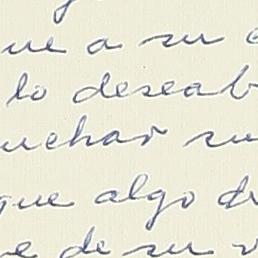 ue a su
lo deseab
uchar su
que algo d
e de su v